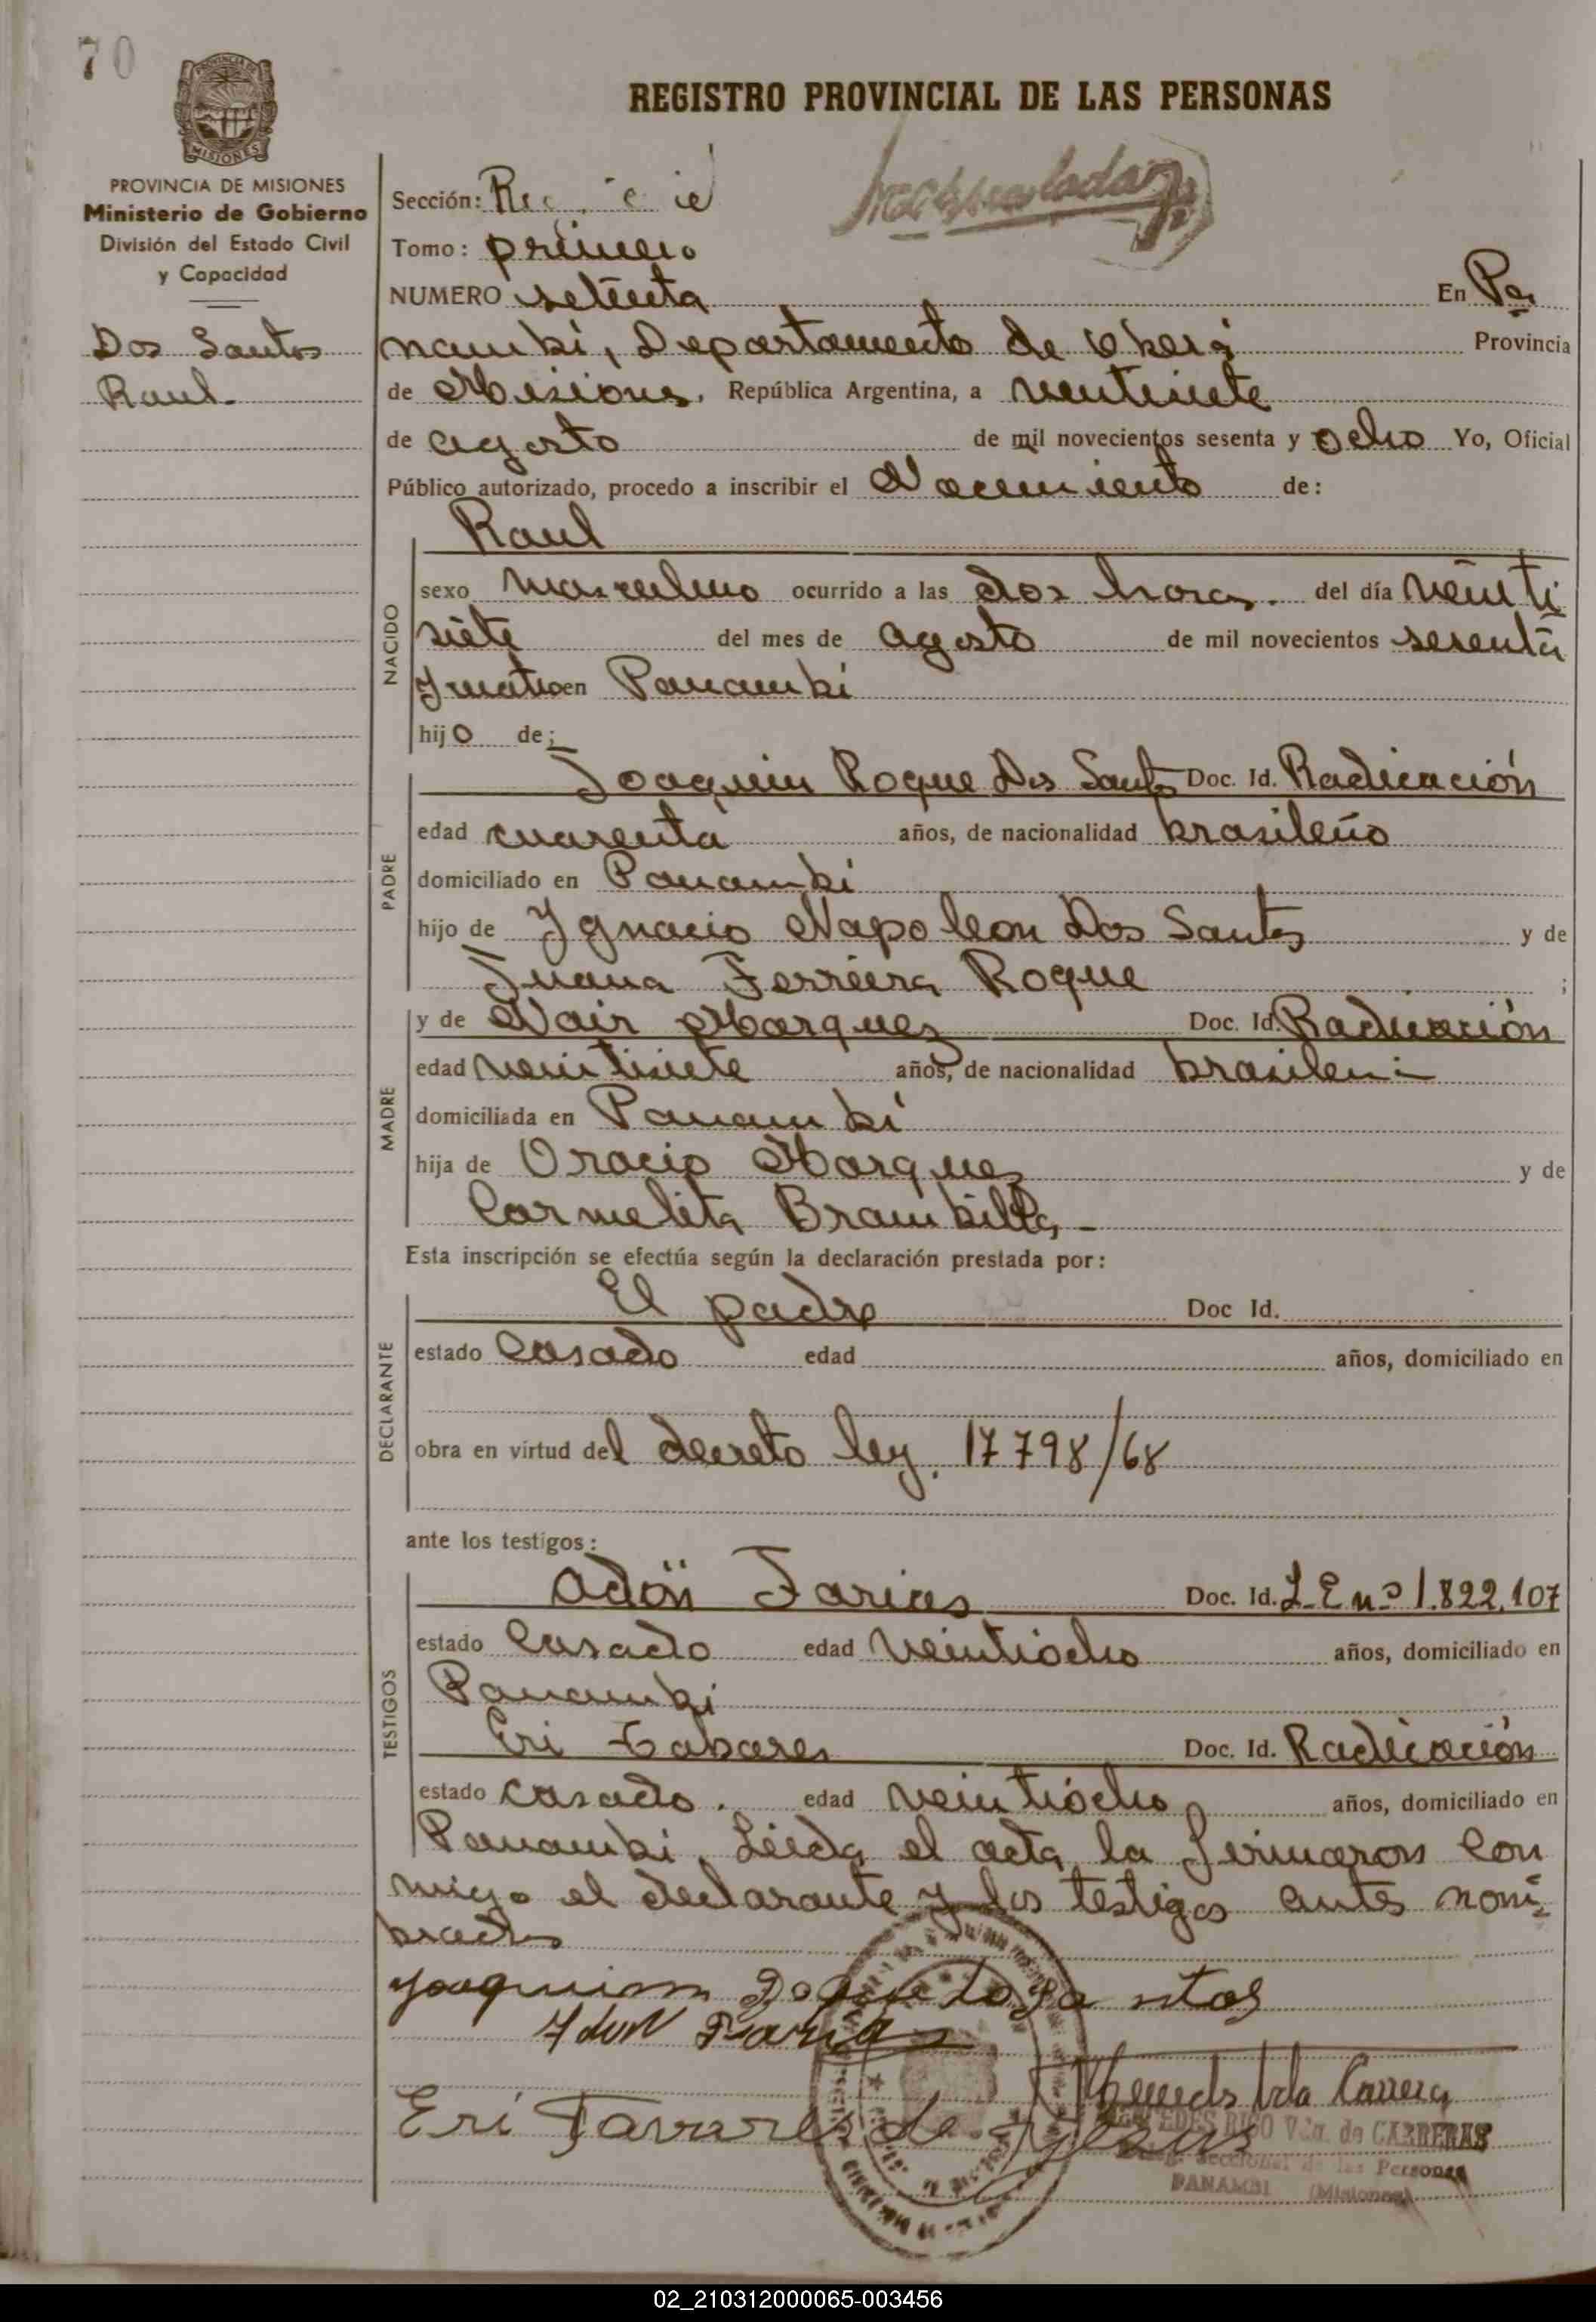 70
PROVINCIA DE
MISIONES
REGISTRO PROVINCIAL DE LAS PERSONAS
PROVINCIA DE MISIONES
Ministerio de Gobierno
División del Estado Civil
y Capacidad
Dos Santos
Raul.
Sección:
Tomo: primero
NUMERO setenta En Pa
nambi, Departamento de Oberá Provincia
de Misiones. República Argentina, a
de agosto de mil novecientos sesenta y ocho Yo, Oficial
Público autorizado, procedo a inscribir el Nacimiento de:
Raul
NACIDO
sexo masculino ocurrido a las dos horas. del día veinti
siete del mes de agosto de mil novecientos sesenta
y cuatro en Panambi
hijo de:
PADRE
Joaquin Roque Dos Santos Doc. Id. Radicación
edad cuarenta años, de nacionalidad brasileño
domiciliado en Panambi
hijo de Ygnacio Napoleon Dos Santos y de
Juana Ferreira Roque ;
MADRE
y de Nair Marques Doc. Id. Radicación
edad veintisiete años, de nacionalidad
domiciliada en Panambi
hija de Oracio Marques y de
Carmelita Brambilla -
Esta inscripción se efectúa según la declaración prestada por:
DECLARANTE
El padre Doc Id.
estado Casado edad años, domiciliado en
obra en virtud del decreto ley. 17798/68
ante los testigos:
TESTIGOS
Adón Farias Doc. Id. L.E nº 1.822.107
estado Casado edad veintiocho años, domiciliado en
Panambi
Eri Tabares Doc. Id. Radicación
estado casado. edad veintiocho años, domiciliado en
Panambi. Leida el acta, la firmaron con
migo el declarante y los testigos antes nom
brados
Joaquim Roque dos Santos
Adon Farias
Eri Tavares de
MERCEDES RIGO Vda. de CARRERAS
Seccional de las Personas
PANAMBI (Misiones)
02_210312000065-003456